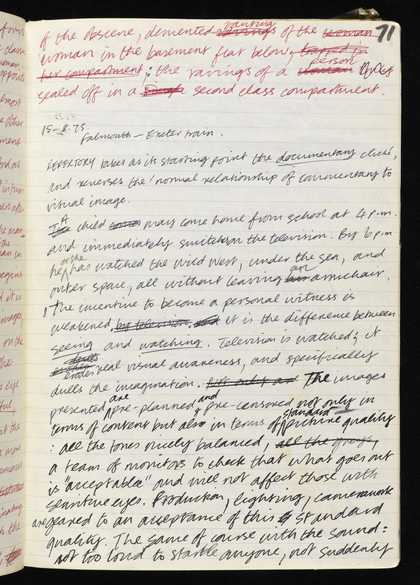 71
of the obscene, demented ravings ranting of the woman
woman in the basement flat below, trapped in
her compartment; the ravings of a person
sealed off in a second class compartment.
15-8-75
Falmouth – Exeter train.
REPERTORY takes as its starting point the documentary cliché,
and reverses the 'normal relationship of commentary to
visual image.
A child may come home from school at 4 p.m.
and immediately switch on the television. By 6 p.m
he or she has watched the wild west, under the sea, and
outer space, all without leaving his an armchair.
The incentive to become a personal witness is
weakened, by television, and it is the difference between
seeing and watching. Television is watched; it
dulls real visual awareness, and specifically
dulls the imagination. Not only are The images
presented are pre-planned and pre-censored not only in
terms of content but also in terms of standard picture quality
: all the tones nicely balanced, all the
a team of monitors to check that what goes out
is "acceptable" and will not affect those with
sensitive eyes. Production, lighting, camerawork
are geared to an acceptance of this standard
quality. The same of course with the sound:
not too loud to startle anyone, not suddenly